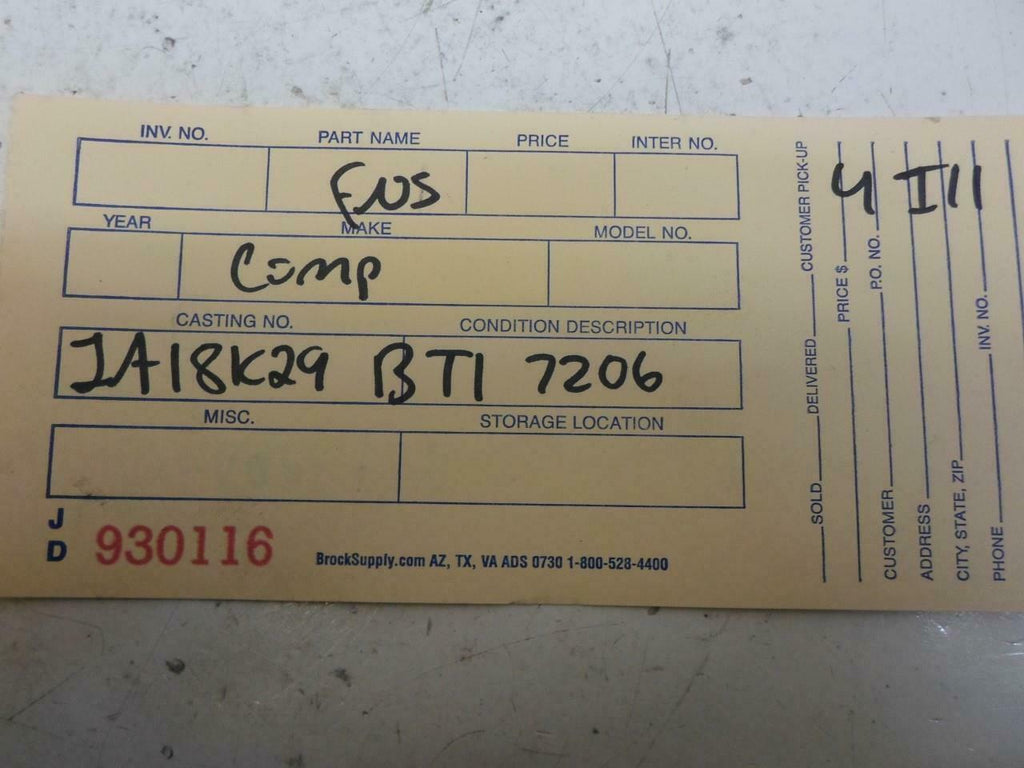 INV. NO. PART NAME PRICE INTER NO.
Eus
YEAR MAKE MODEL NO.
Comp
CASTING NO. CONDITION DESCRIPTION
JA18K29 BTI 7206
MISC. STORAGE LOCATION
J D 930116
BrockSupply.com AZ, TX, VA ADS 0730 1-800-528-4400
4 III
SOLD DELIVERED CUSTOMER PICK-UP
PRICE $
CUSTOMER P.O. NO.
ADDRESS
CITY, STATE, ZIP
PHONE INV. NO.